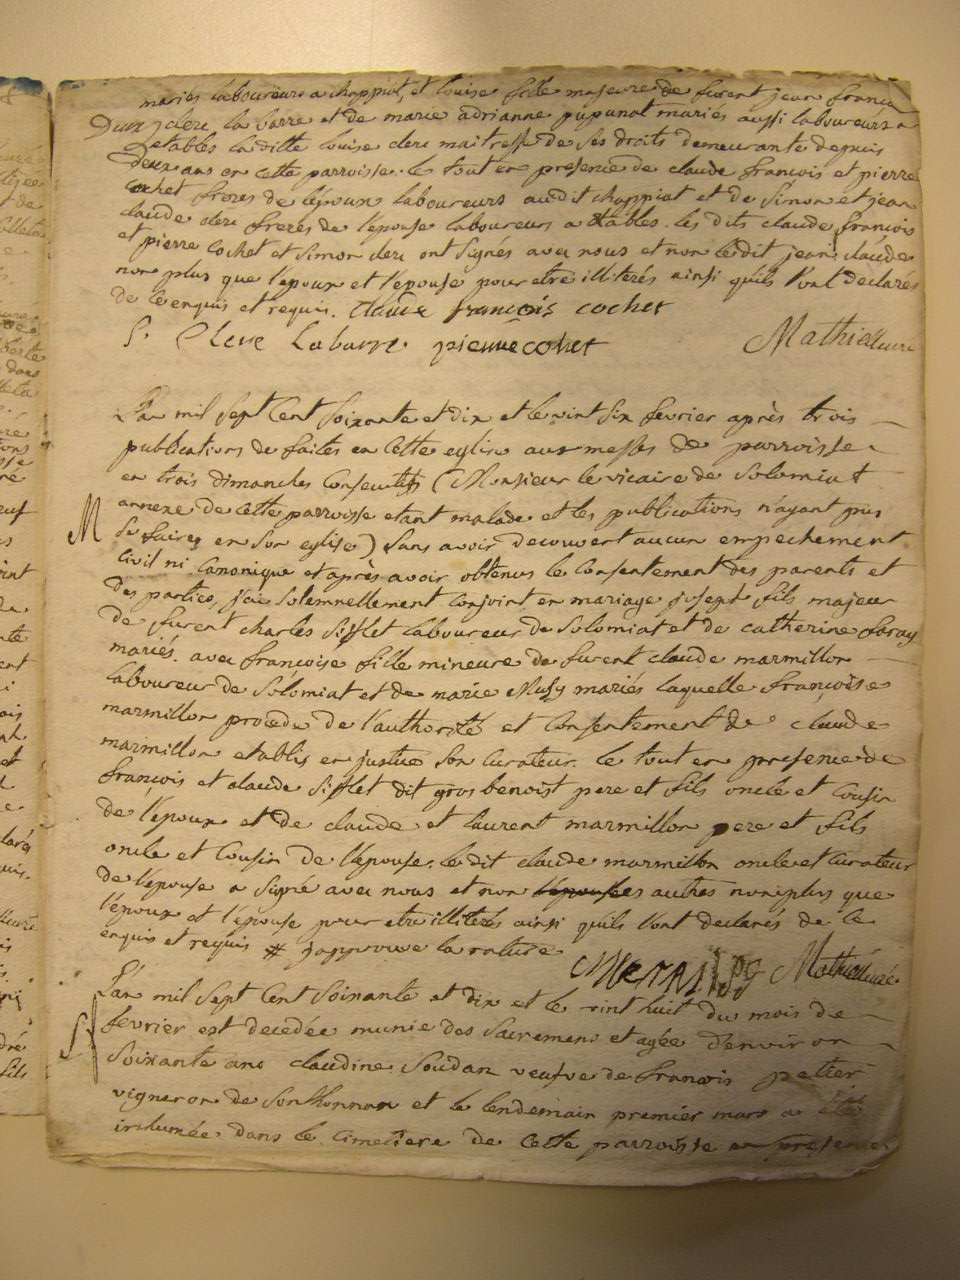 mariés laboureurs a chappiat, et louise fille majeure de furent jean françois
clerc la barre et de marie adrianne pupunat mariés aussi laboureurs a
etables la ditte louise clerc maitresse de ses droits demeurante depuis
deux ans en cette parroisse. le tout en presence de claude françois et pierre
cochet freres de l'epoux laboureurs audit chappiat et de Simon et jean
claude clerc freres de l'epouse laboureurs a etables. les dits claude françois
et pierre cochet et Simon clerc ont signés avec nous et non ledit jean claude
non plus que l'epoux et l'epouse pour etre illiterés ainsi quils l'ont declarés
de ce enquis et requis. claude françois cochet
S. Clerc Labarre pierre cochet Mathieu curé
L'an mil sept cent soixante et dix et le vint six fevrier après trois
publications de faites en cette eglise aux messes de parroisse
en trois dimanches consecutifs (Monsieur le vicaire de Solomiat
annexe de cette parroisse etant malade et les publications n'ayant pus
M
se faire en son eglise) sans avoir decouvert aucun empechement
civil ni canonique et après avoir obtenus le consentement des parents et
des parties, j'ai solemnellement conjoint en mariage joseph fils majeur
de furent charles Sifflet laboureur de Solomiat et de catherine foray
mariés. avec françoise fille mineure de furent claude marmillon
laboureur de Solomiat et de marie Musy mariés laquelle françoise
marmillon procede de l'authorité et consentement de claude
marmillon etablis en justice son curateur. le tout en presence de
françois et claude Sifflet dit gros benoist pere et fils oncle et cousin
de l'epoux et de claude et laurent marmillon pere et fils
oncle et cousin de l'epouse. le dit claude marmillon oncle et curateur
de l'epouse a signé avec nous et non les autres non plus que
l'epoux et l'epouse pour etre illiterés ainsi quils l'ont declarés de ce
enquis et requis # j'approuve la rature
Mathieu curé
L'an mil sept cent soixante et dix et le vint huit du mois de
fevrier est decedée munie des sacremens et agée d'environ
soixante ans claudine Soudan veufve de françois peltier
vigneron de Sonthonnax et le lendemain premier mars a été
inhumée dans le cimetiere de cette parroisse en presence